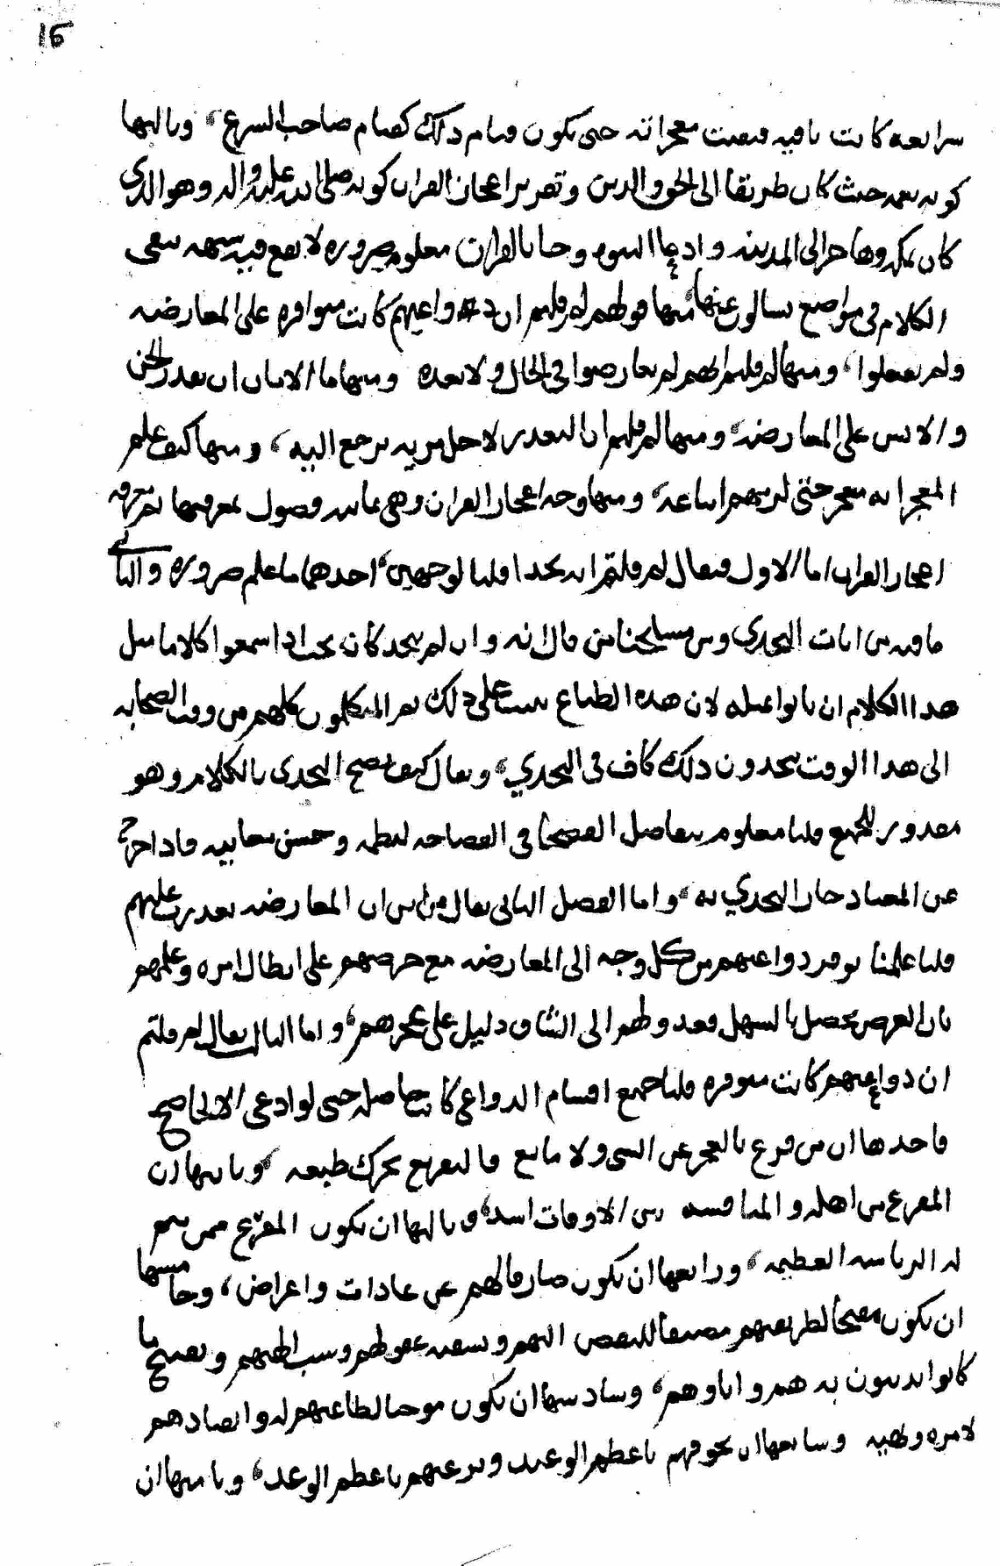 16
شرايعه كانت باقيه فبقيت معجزاته حتى يكون قيام ذلك كقيام صاحب الشرع، وثالثها
كونه نعمه حيث كان طريقا الى الحق والدين وتقرير اعجاز القران كونه صلى الله عليه واله وهو الذي
كان بمكه وهاجر الى المدينه وادعا النبوه وجا بالقران معلوم ضروره لا يقع فيه شبهه بقي
الكلام في مواضع يسالون عنها، منها قولهم لم قلتم ان دواعيهم كانت متوافره على المعارضه
ولم يفعلوا، ومنها لم قلتم انهم لم يعارضوا في الحال ولا بعده ومنها ما الامان ان يقدر الجن
والانس على المعارضه، ومنها لم قلتم ان التعذر لاجل مزيه ترجع اليه، ومنها كيف علم
المعجز انه معجز حتى لزمهم اتباعه، ومنها وجه اعجاز القران وهي ثمانيه فصول بمعرفتها تتم معرفه
اعجاز القران اما الاول فيقال لم قلتم انه تحدا قلنا لوجهين، احدهما ما علم ضروره والثاني
ما فيه من ايات التحدي ومن مشايخنا من قال انه وان لم يتحد كان يجب اذا سمعوا كلاما مثل
هذا الكلام ان ياتوا بمثله لان هذه الطباع تبعث على ذلك ثم المتكلمون كلهم من وقت الصحابه
الى هذا الوقت يتحدون ذلك كاف في التحدي، ويقال كيف يصح التحدي بالكلام وهو
مقدور للجميع قلنا معلوم تفاضل الفصحا في الفصاحه لنظمه وحسن معانيه فاذا خرج
عن المعتاد جاز التحدي به، واما الفصل الثاني يقال من اين ان المعارضه تعذرت عليهم
قلنا علمنا توفر دواعيهم من كل وجه الى المعارضه مع حرصهم على ابطال امره وعلمهم
بان الغرض يحصل بالسهل فعدولهم الى الشاق دليل على عجزهم، واما الثالث يقال لم قلتم
ان دواعيهم كانت متوفره قلنا جميع اقسام الدواعي كانت حاصله حتى لو ادعي الالجا صح
فاحدها ان من قرع بالعجز عن الشي ولا مانع فالتقريع يحرك طبعه، وثانيها ان
التقريع من اهله والمنافسه من الاوقات اشد، وثالثها ان يكون المقرع ممن يتم
له الرياسه العظيمه، ورابعها ان يكون صارفا لهم عن عادات واغراض، وخامسها
ان يكون مقبحا لطريقتهم مضيفا للنقص اليهم وتسفيه عقولهم وسب الهتهم وتقبيح ما
كانوا يدينون به هم واباوهم، وسادسها ان يكون موجبا لطاعتهم له وانقيادهم
لامره ونهيه وسابعها ان يخوفهم باعظم الوعيد ويرغبهم باعظم الوعد، وثامنها ان